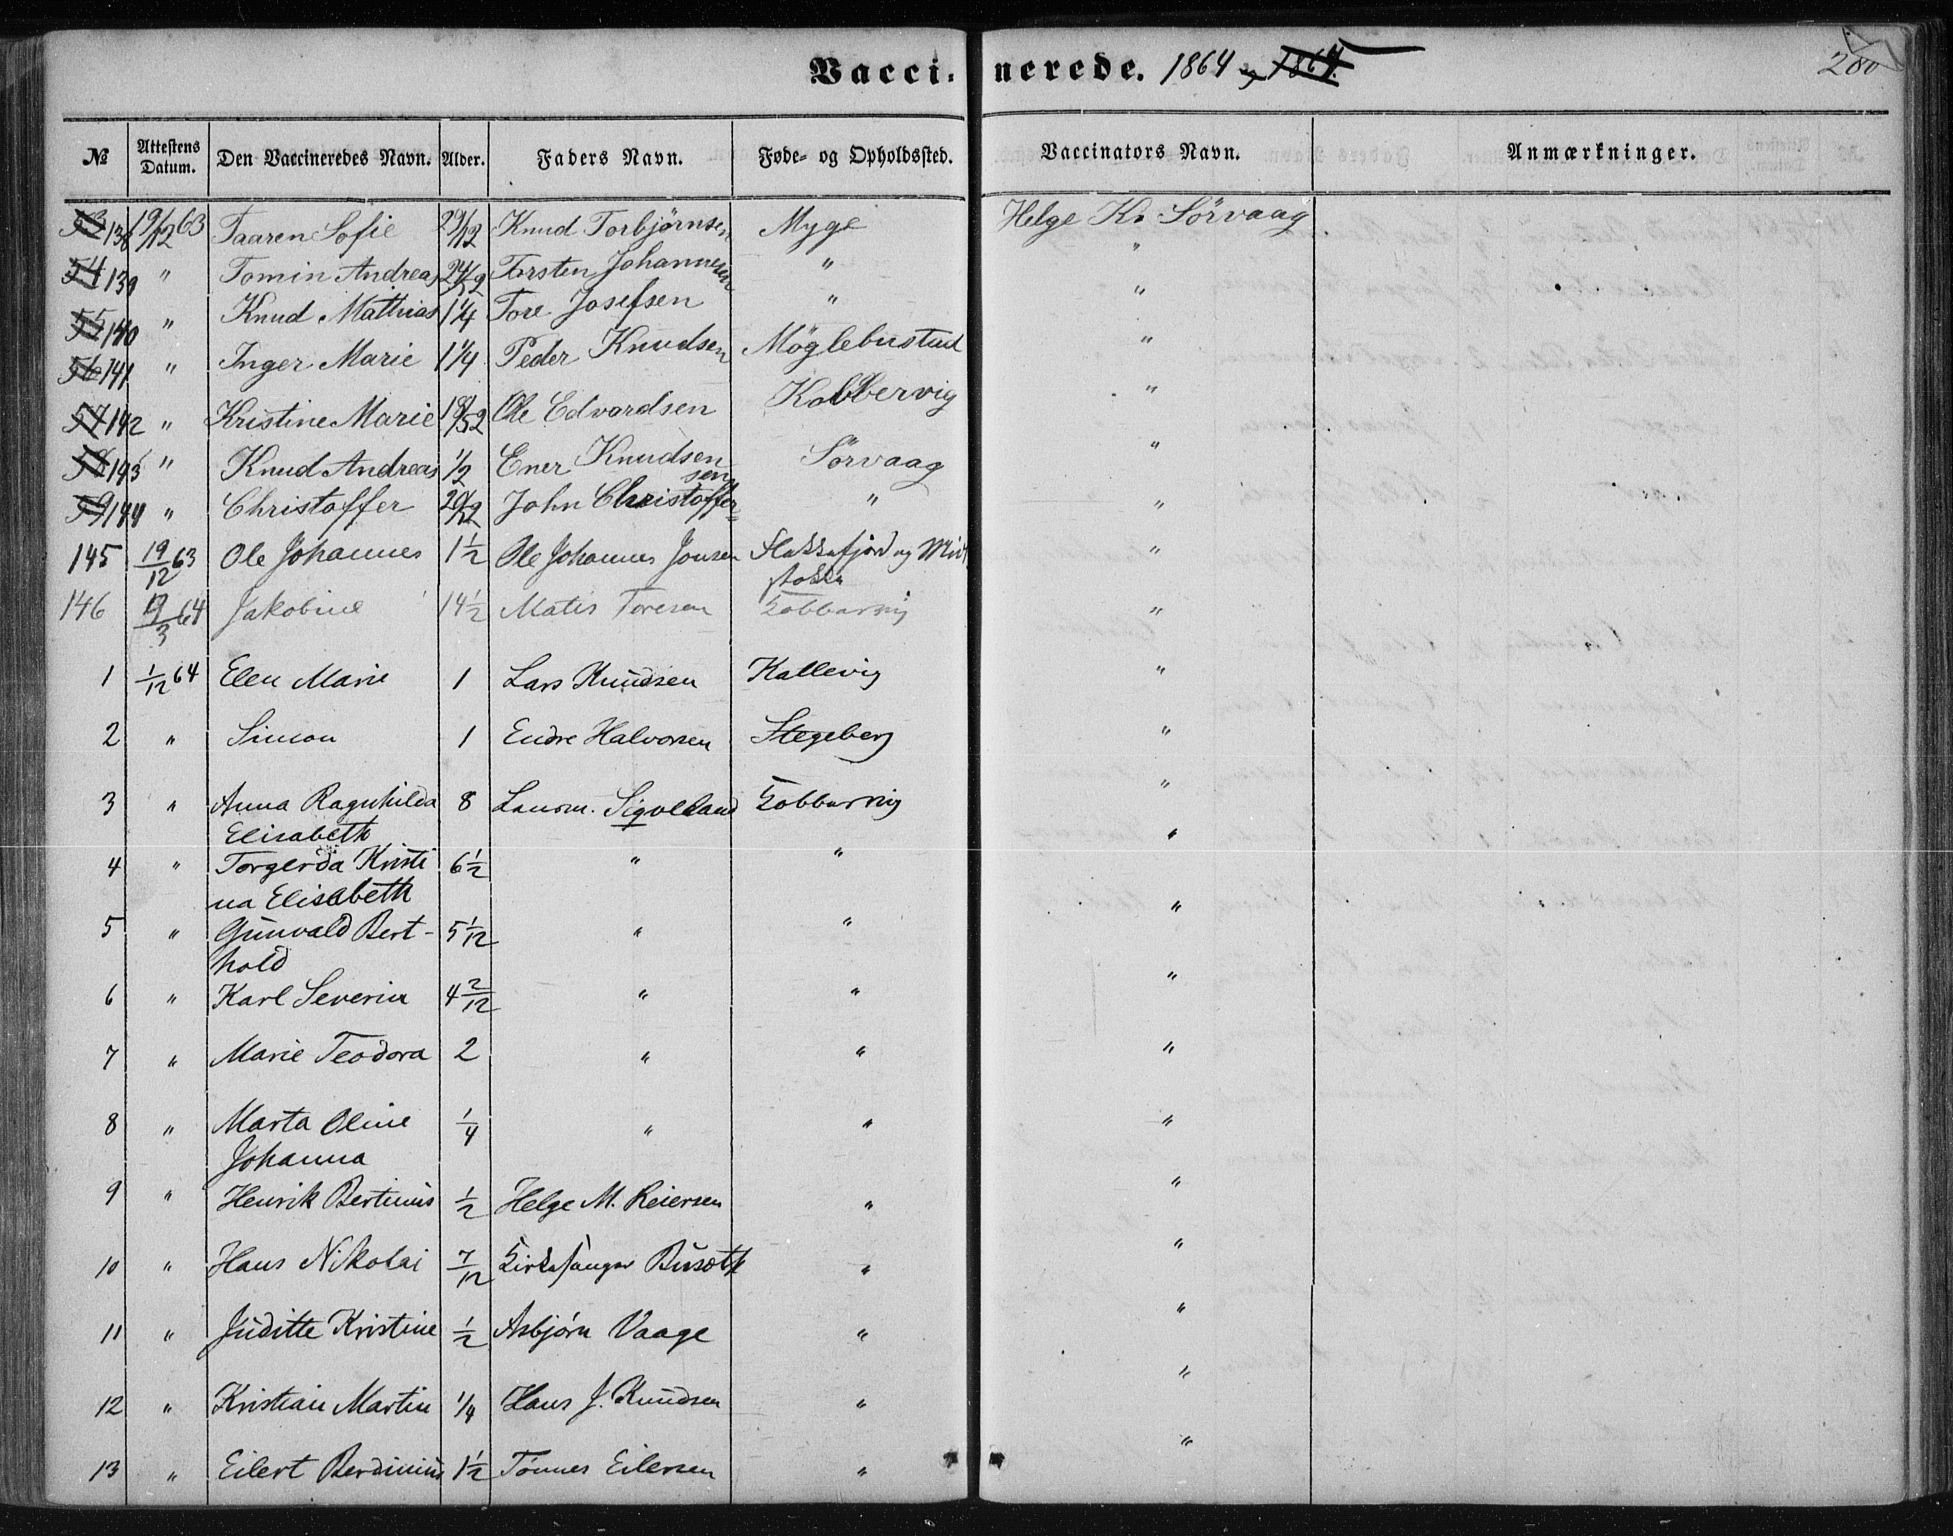 Vaccinerede. 1864 og 1864. 280
№ Attestens Datum. Den Vaccineredes Navn. Alder. Faders Navn. Føde- og Opholdssted. Vaccinators Navn. Anmærkninger.
53 138 19/12 63 Taaren Sofie Knud Torbjørnsen Myge Helge Kr. Sörvaag
54 139 " Tomin Andreas Torsten Johannesen " "
55 140 " Knud Mathias 1 1/4 Tore Josefsen " "
56 141 " Inger Marie 1 1/4 Peder Knudsen Möglebustad "
57 142 " Kristine Marie 18/52 Ole Edvardsen Kobbervig "
58 143 " Knud Andreas 1/2 Ener Knudsen Sörvaag "
59 144 " Christoffer John Christoffersen " "
145 19/12 63 Ole Johannes 1 1/2 Ole Johannes Jonsen Flekkefjord og Midt "
stokke
146 19/3 64 Jakobine 14 1/2 Matis Toresen Kobbervig "
1 1/12 64 Elen Marie 1 Lars Knudsen Kallevig "
2 " Simon 1 Endre Halvorsen Stegeberg "
3 " Anna Ragnhilda 8 Lensm. Sigvelland Kobbervig "
Elisabeth
4 " Torgerda Kristi 6 1/2 " " "
na Elisabeth
5 " Gunvald Bert- 5 1/12 " " "
hold
6 " Karl Severin 4 2/12 " " "
7 " Marie Teodora 2 " " "
8 " Marta Oline 1/4 " " "
Johanna
9 " Henrik Bertinius 1/2 Helge M. Reiersen " "
10 " Hans Nikolai 7/12 Kirkesanger Busæth " "
11 " Juditte Kristine 1/2 Asbjørn Vaage " "
12 " Kristian Martin 1/4 Hans J. Knudsen " "
13 " Eilert Berdinius 1 1/2 Tönnes Eilersen " "